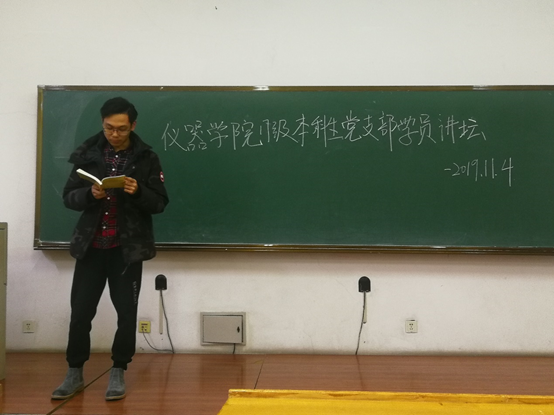 仪器学院17级本科生党支部学员讲坛
-2019.11.4